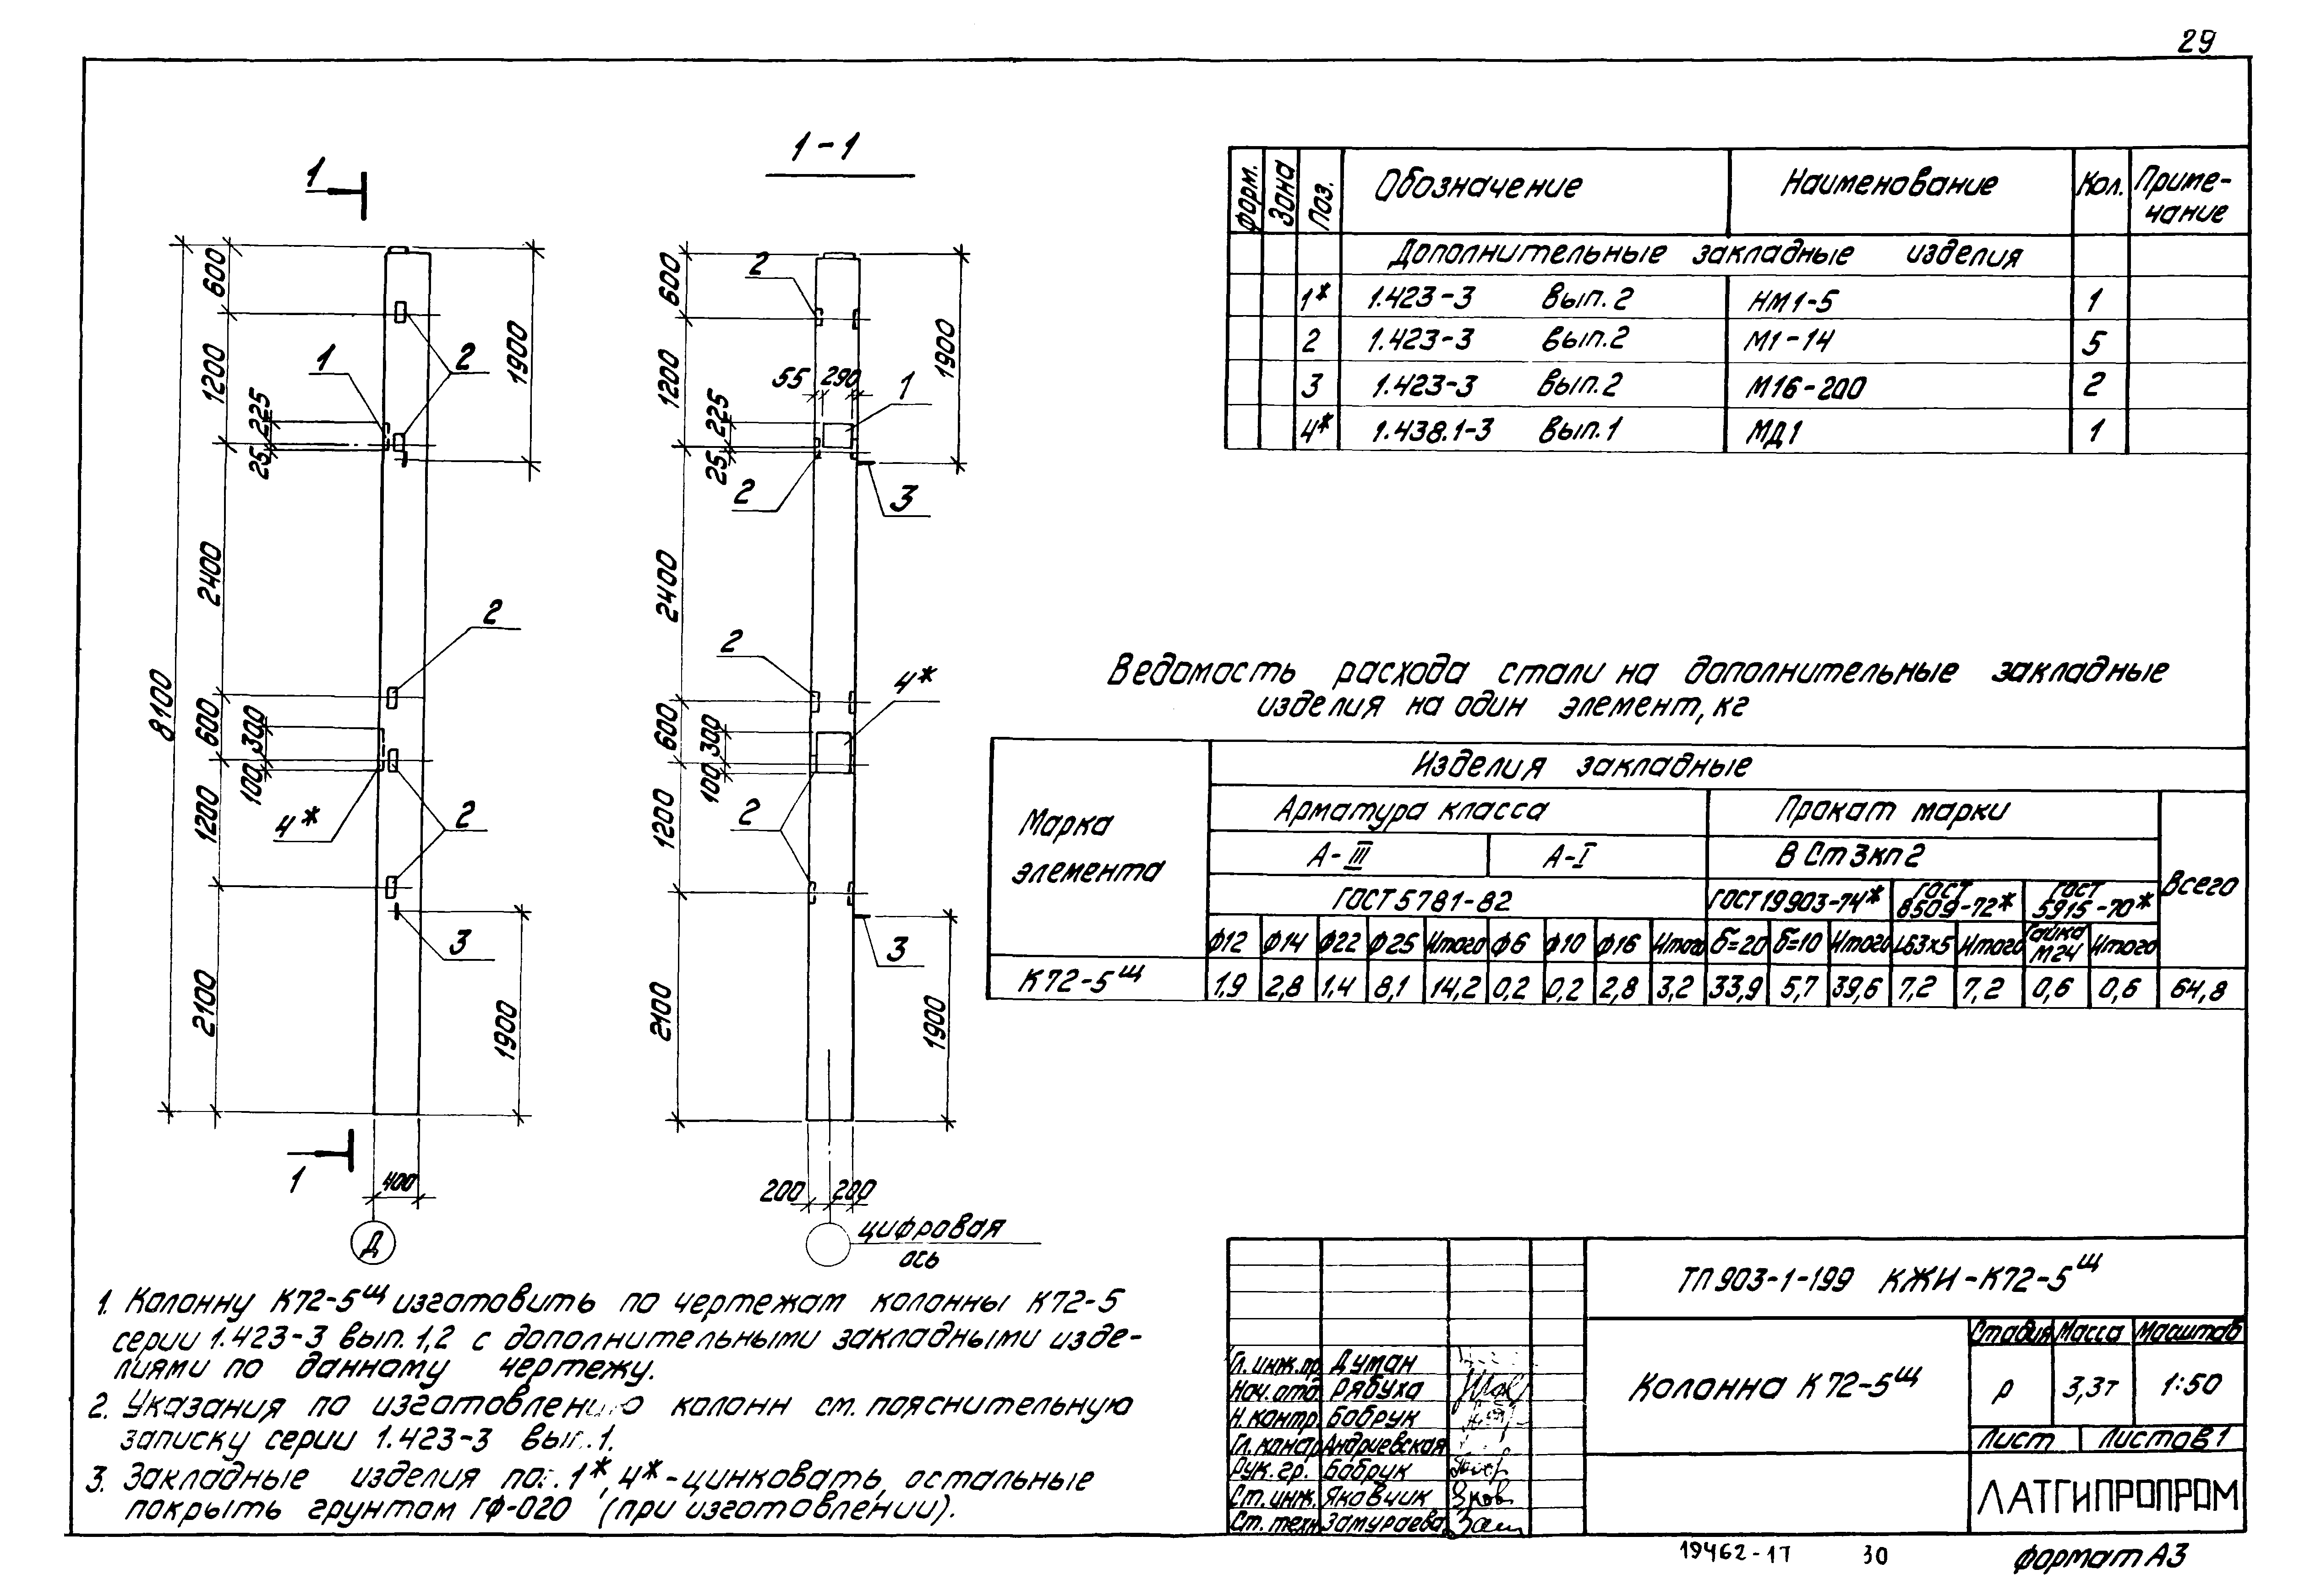 29
1
1-1
8100
600
1200
225
25
2400
600
300
100
1200
2100
1900
1900
1
2
2
4*
2
3
1
400
Д
600
1200
225
25
2400
600
300
100
1200
2100
1900
1900
55
290
2
1
2
3
2
4*
2
3
200
200
цифровая
ось
Форм.
Зона
Поз.
Обозначение
Наименование
Кол.
Приме-
чание
Дополнительные закладные изделия
1* 1.423-3 вып.2 НМ1-5 1
2 1.423-3 вып.2 М1-14 5
3 1.423-3 вып.2 М16-200 2
4* 1.438.1-3 вып.1 МД1 1
Ведомость расхода стали на дополнительные закладные
изделия на один элемент, кг
Марка
элемента
Изделия закладные
Арматура класса
Прокат марки
Всего
А-III
А-I
В Ст3кп2
ГОСТ 5781-82
ГОСТ 19903-74*
ГОСТ
8509-72*
ГОСТ
5915-70*
Ф12 Ф14 Ф22 Ф25 Итого Ф6 Ф10 Ф16 Итого δ=20 δ=10 Итого L63x5 Итого Гайка М24 Итого
К72-5щ 1,9 2,8 1,4 8,1 14,2 0,2 0,2 2,8 3,2 33,9 5,7 39,6 7,2 7,2 0,6 0,6 64,8
1. Колонну К72-5щ изготовить по чертежам колонны К72-5
серии 1.423-3 вып. 1,2 с дополнительными закладными изде-
лиями по данному чертежу.
2. Указания по изготовлению колонн см. пояснительную
записку серии 1.423-3 вып.1.
3. Закладные изделия поз. 1*, 4* - цинковать, остальные
покрыть грунтом ГФ-020 (при изготовлении).
ТП 903-1-199 КЖИ-К72-5щ
Гл. инж. пр. Думан
Нач. отд. Рябуха
Н. контр. Бобрук
Гл. констр. Андриевская
Рук. гр. Бобрук
Ст. инж. Яковчик
Ст. техн. Замураева
Колонна К72-5щ
Стадия Масса Масштаб
р 3,3т 1:50
Лист Листов 1
ЛАТГИПРОПРОМ
19462-17 30
формат А3